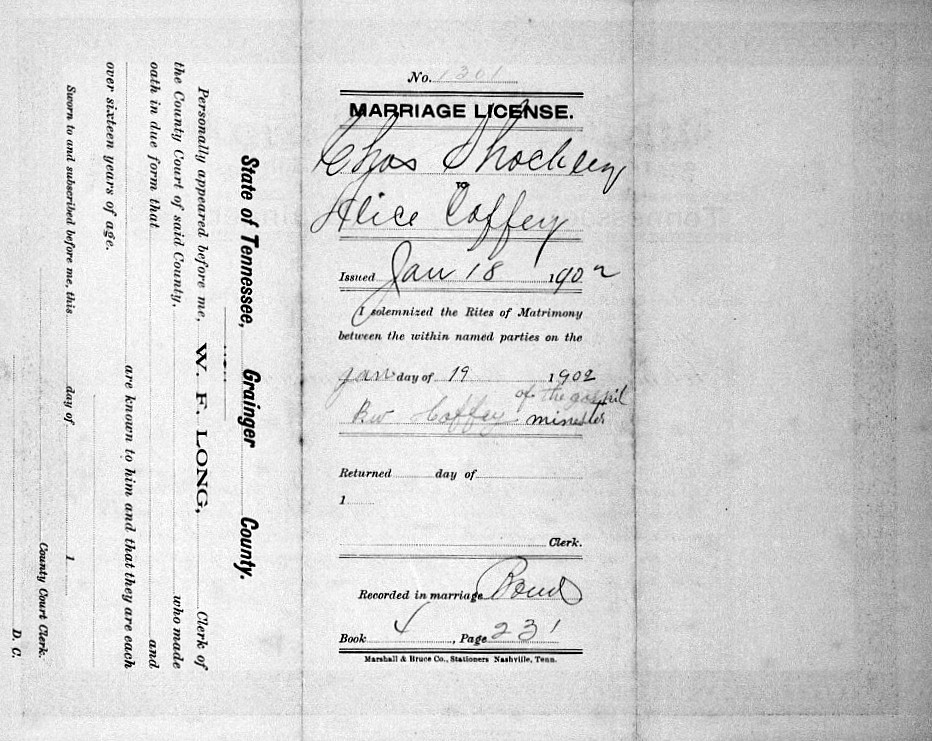 No. 1301
MARRIAGE LICENSE.
Chas Shockley
TO
Alice Coffey
Issued Jan 18 1902
I solemnized the Rites of Matrimony
between the within named parties on the
Jan day of 19 1902
of the gospil
Rw Coffey minester
Returned day of
1
Clerk.
Recorded in marriage Bond
Book , Page 231
Marshall & Bruce Co., Stationers Nashville, Tenn.
State of Tennessee, Grainger County.
Personally appeared before me, W. F. LONG, Clerk of
the County Court of said County, who made
oath in due form that and
are known to him and that they are each
over sixteen years of age.
Sworn to and subscribed before me, this day of 1
County Court Clerk.
D. C.